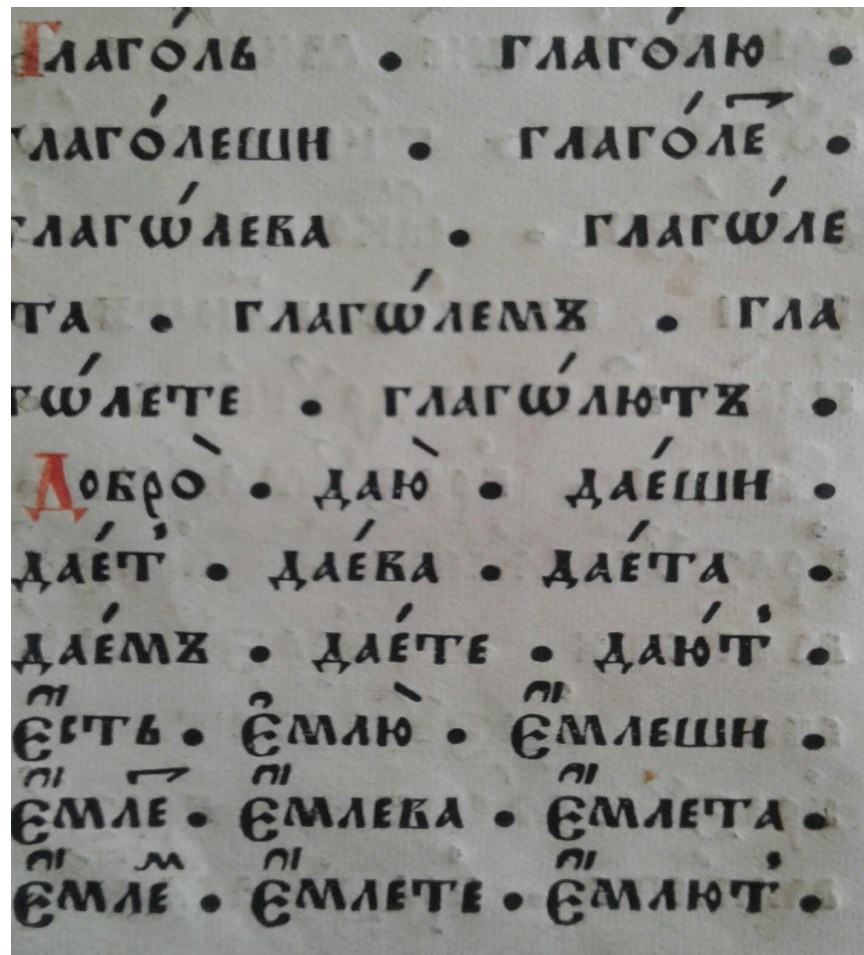 Глаго́ль • глаго́лю •
глаго́леши • глаго́леⷮ
глагѡ́лева • глагѡ́ле
та • глагѡ́лемъ • гла
гѡ́лете • глагѡ́лютъ •
Добро̀ • даю̀ • дае́ши •
дае́т̾ • дае́ва • дае́та •
дае́мъ • дае́те • даю́т̾ •
Є҆́сть • є҆млю̀ • є҆́млеши •
є҆́млеⷮ • є҆́млева • є҆́млета •
є҆́млеⷨ • є҆́млете • є҆́млют̾ •